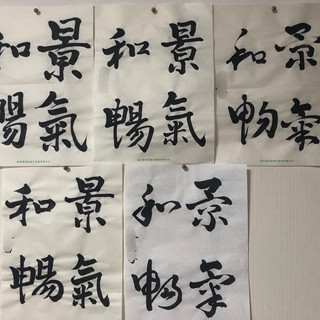 景氣
和暢
景氣
和暢
景氣
和暢
景氣
和暢
景氣
和暢